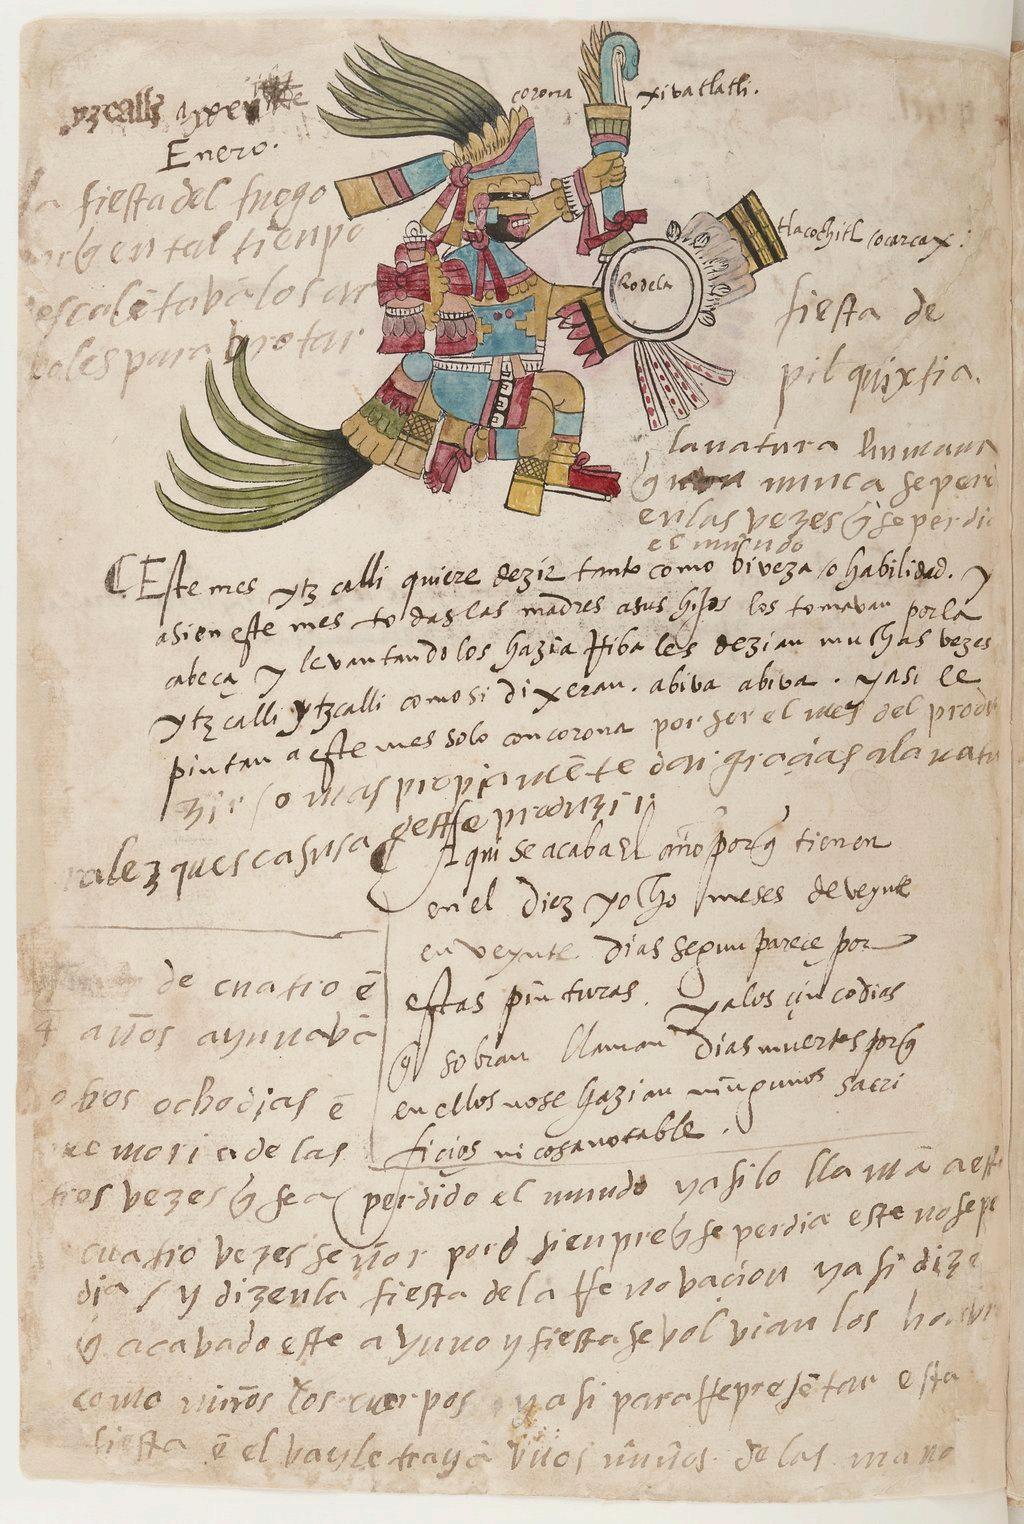 yzcalli
Enero.
la fiesta del fuego
en tal tienpo
escalētavā los ar
boles para brotar
corona
xivatlatli.
tlacochitl
Rodela
fiesta de
pilquixtia.
la natura humana
q̄ nunca se perdi
en las vezes q̄ se perdio
el mundo
Este mes ytzcalli quiere dezir tanto como biveza /o habilidad. y
asi en este mes todas las madres a sus hijos los tomavan por la
cabeça y levantandolos hazia Riba les dezian muchas vezes
ytzcalli ytzcalli como si dixeran. abiva abiva . y asi le
pintan a este mes solo con corona por ser el mes del produ
zir /o mas propiamēte dar gracias a la natu
raleza ques causa deste produzir
Aqui se acaba El año porq̄ tienen
en el diez y ocho meses de veynte
en veynte dias segun pareçe por
estas pinturas. y a los çinco dias
q̄ sobran llaman dias muertos porq̄
en ellos no se hazian ningunos sacri
ficios ni cosa notable.
de cuatro ē
4 años ayunavā
otros ocho dias ē
memoria de las
tres vezes q̄ se a perdido el mundo y asi lo llamā a este
cuatro vezes señor porq̄ sienpre q̄ se perdia este no se pe
dia / y dizen la fiesta de la Renovaçion y asi dize
q̄ acabado este ayuno y fiesta se volvian los honbr
como niños los cuerpos y asi para Representar esta
fiesta ē el bayle trayā unos niños de las mano